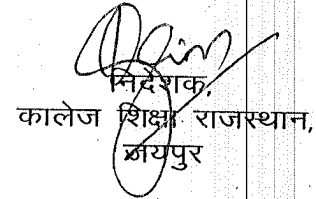 निदेशक,
कालेज शिक्षा राजस्थान,
जयपुर